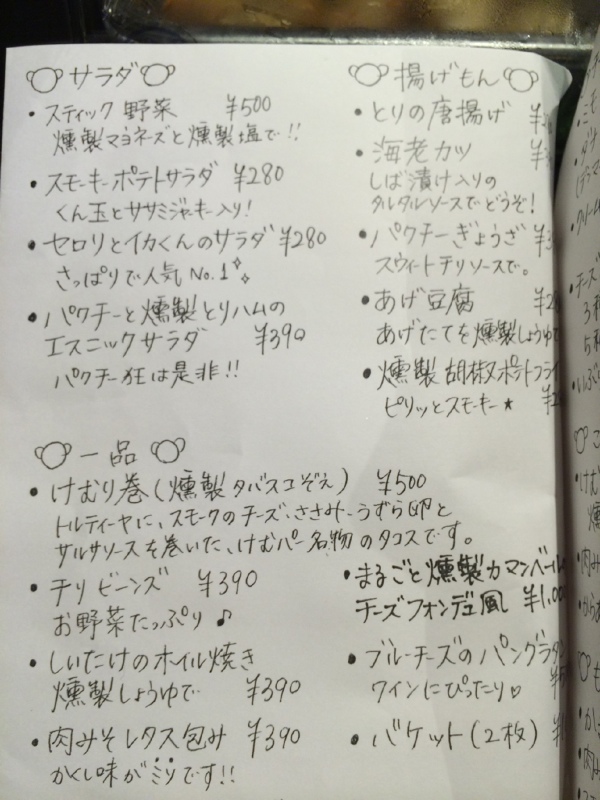 サラダ
・スティック野菜 ¥500
燻製マヨネーズと燻製塩で!!
・スモーキーポテトサラダ ¥280
くん玉とササミジャーキー入り!
・セロリとイカくんのサラダ ¥280
さっぱりで人気No.1
・パクチーと燻製とりハムの
エスニックサラダ ¥390
パクチー狂は是非!!
揚げもん
・とりの唐揚げ
・海老カツ
しば漬け入りの
タルタルソースでどうぞ!
・パクチーぎょうざ
スウィートチリソースで。
・あげ豆腐
あげたてを燻製しょうゆで
・燻製胡椒ポテトフライ
ピリッとスモーキー★
一品
・けむり巻(燻製タバスコぞえ) ¥500
トルティーヤに、スモークのチーズ・ささみ・うずら卵と
サルサソースを巻いた、けむパー名物のタコスです。
・チリビーンズ ¥390
お野菜たっぷり♪
・しいたけのホイル焼き
燻製しょうゆで ¥390
・肉みそレタス包み ¥390
かくし味がミソです!!
・まるごと燻製カマンベール
チーズフォンデュ風 ¥1,000
・ブルーチーズのパングラタン
ワインにぴったり♡
・バケット(2枚)